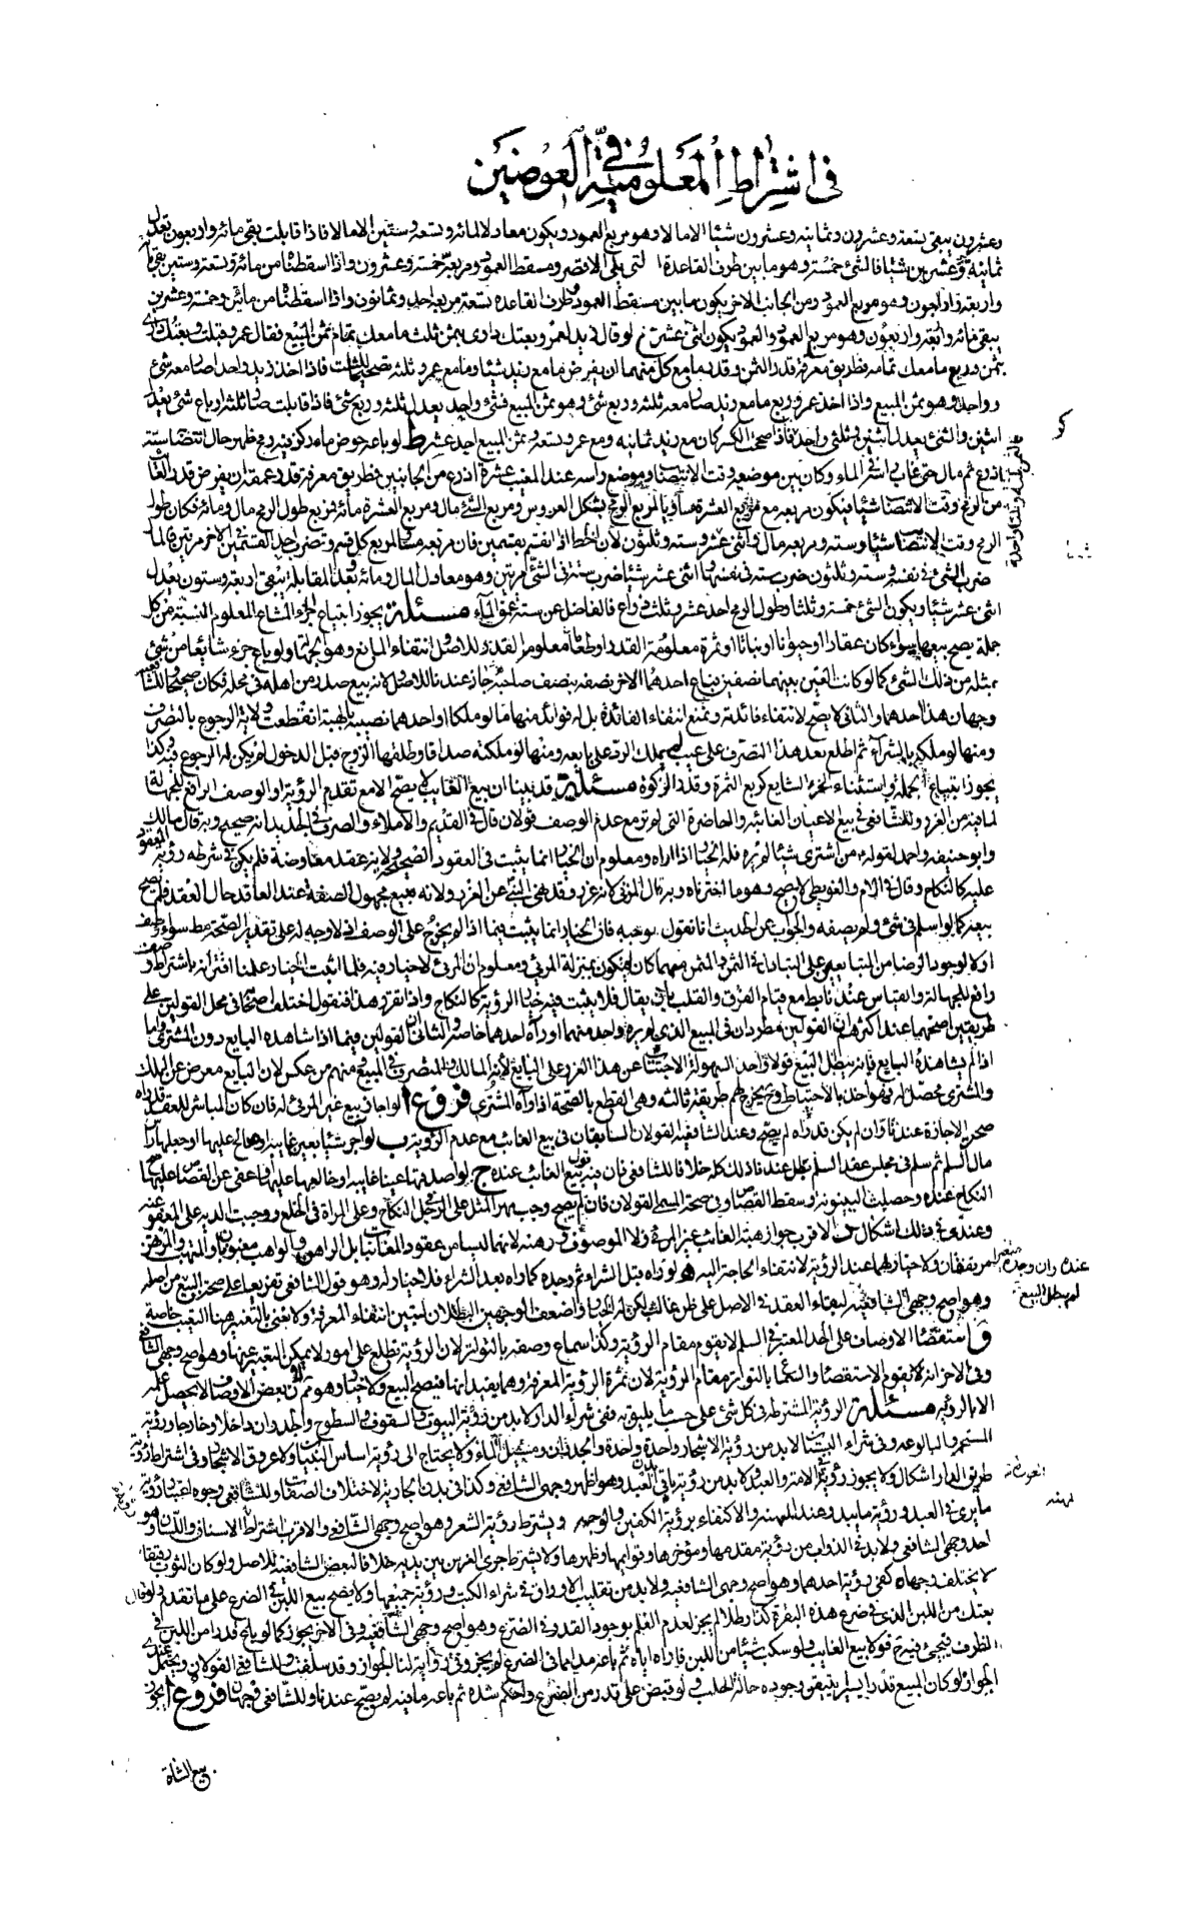 في اشتراط المعلومية في العوضين
وعشرون يبقى تسعة وعشرون وثمانية وعشرون شيئا الا مالا وهو مربع العمود ويكون معادلا لمائة وتسعة وستين الا مالا فاذا قابلت بقي مائة واربعون تعدل
ثمانية وعشرين شيئا فالشئ خمسة وهو ما بين طرف القاعدة التي يلي الاقصر ومسقط العمود ومربعه خمسة وعشرون واذا اسقطناه من مائة وتسعة وستين بقي مائة
واربعة واربعون وهو مربع العمود ومن الجانب الاخر يكون ما بين مسقط العمود وطرف القاعدة تسعة مربعه احد وثمانون واذا اسقطناه من مائتين وخمسة وعشرين
يبقى مائة واربعة واربعون وهو مربع العمود والعمود يكون اثنى عشر لو قال زيد لعمرو بعتك داري بثمن ثلث ما معك تمام ثمن المبيع فقال عمرو قبلت وبعتك داري
بثمن وربع ما معك تمامه فطريق معرفة قدر الثمن وقدر ما مع كل منهما ان يفرض ما مع زيد شيئا وما مع عمرو ثلثة تصحيحا للثلث فاذا اخذ زيد واحدا صار معه شئ
وواحد وهو ثمن المبيع واذا اخذ عمرو ربع ما مع زيد صار معه ثلثة وربع شئ وهو ثمن المبيع فشئ وواحد يعدل ثلثة وربع شئ فاذا قابلت صار ثلثة ارباع شئ يعدل
اثنين والشئ يعدل اثنين وثلثي واحد فاذا صححت الكسر كان مع زيد ثمانية ومع عمرو تسعة وثمن المبيع احد عشر ط لو باعه حوض ماء ركز فيه رمح ظهر حال انتصابه ستة
اذرع ثم مال حتى غاب راسه في الماء وكان بين موضعه وقت الانتصاب وموضع راسه عند المغيب عشرة اذرع من الجانبين فطريق معرفة قدر عمقه ان يفرض قدر الغائب
من الرمح وقت الانتصاب شيئا فيكون مربعه مع مربع العشرة مساويا لمربع الرمح بشكل العروس ومربع الشئ مال ومربع العشرة مائة فمربع طول الرمح مال ومائة فكان طول
الرمح وقت الانتصاب شيئا وستة ومربعه مال واثنى عشر شيئا وستة وثلثون لان الخط اذا انقسم بقسمين فان مربعه مساو لمربع كل قسم وتضرب احد القسمين في الاخر مرتين مال
ضرب الشئ في نفسه وستة وثلثون ضرب ستة في نفسها واثنى عشر شيئا ضرب ستة في الشئ مرتين وهو معادل المال ومائة وبعد المقابلة يبقى اربعة وستون يعدل
اثنى عشر شيئا ويكون الشئ خمسة وثلثا وطول الرمح احد عشر وثلث ذراع فالفاضل عن ستة عمق الماء مسئلة يجوز ابتياع الجزء المشاع المعلوم النسبة من كل
جملة يصح بيعها سواء كان عقارا او حيوانا او نباتا او ثمرة معلومة القدر او طعاما معلوم القدر للاصل وانتفاء المانع وهو الجهالة ولو باع جزء شايعا من شئ
بمثله من ذلك الشئ كما لو كانت العين بينهما نصفين فباع احدهما الاخر نصفه بنصف صاحبه جاز عندنا للاصل ولانه بيع صدر من اهله في محله فكان صحيحا وللشافعية
وجهان هذا احدهما والثاني لا يصح لانتفاء فائدته ونمنع انتفاء الفائدة بل له فوائد منها ما لو ملكا او احدهما نصيبه بالهبة انقطعت ولاية الرجوع بالتصرف
ومنها لو ملكه بالشراء ثم اطلع بعد هذا التصرف على عيب لم يملك الرد على بايعه ومنها لو ملكته صداقا وطلقها الزوج قبل الدخول لم يكن له الرجوع فيه وكذا
يجوز ابتياع الجملة واستثناء الجزء الشايع كربع الثمرة وقدر الزكوة مسئلة قد بينا ان بيع الغايب لا يصح الا مع تقدم الرؤية او الوصف الرافع للجهالة
لما فيه من الغرر وللشافعي في بيع الاعيان الغائبة والحاضرة التي لم تر مع عدم الوصف قولان قال في القديم والاملاء والصرف في الجديد انه صحيح وبه قال مالك
وابو حنيفة واحمد لقوله ع من اشترى شيئا لم يره فله الخيار اذا راه ومعلوم ان الخيار انما يثبت في العقود الصحيحة ولانه عقد معاوضة فلم يكن من شرطه رؤية المعقود
عليه كالنكاح وقال في الام والبويطي لا يصح وهو ما اخترناه وبه قال المزني لانه غرر وقد نهى النبي ص عن الغرر ولانه مبيع مجهول الصفة عند العاقد حال العقد فلم يصح
بيعه كما لو اسلم في شئ ولم يصفه والجواب عن الحديث انا نقول بموجبه فان الخيار انما يثبت فيما اذا لم يخرج على الوصف اذ لا وجه له على تقدير الصحة مطلقا سواء وصف
اولا لوجود الرضا من المتبايعين على التبادل في الثمن والمثمن مهما كان فيكون بمنزلة المرئي ومعلوم ان المرئي لا خيار فيه فلما اثبت الخيار علمنا اقترانه باشتراط وصف
رافع للجهالة والقياس عندنا باطل مع قيام الفرق والقلب بان يقال فلا يثبت فيه خيار الرؤية كالنكاح واذا تقرر هذا فنقول اختلف اصحابه في محل القولين على
طريقين اصحهما عند اكثرهم ان القولين مطردان في المبيع الذي لم يره واحد منهما او رآه احدهما خاصة والثاني ان القولين فيما اذا شاهده البايع دون المشتري اما
اذا لم يشاهده البايع فانه يبطل البيع قولا واحدا لسهولة الاجتناب عن هذا الغرر على البايع لأنه المالك والمتصرف في المبيع ومنهم من عكس لان البايع معرض عن الملك
والمشتري محصل له فهو اجدر بالاحتياط وح يخرج لهم طريقة ثالثة وهي القطع بالصحة اذا رآه المشتري فروع ا لو اجاز بيع غير المرئي له فان كان المباشر للعقد قد رآه
صحت الاجازة عندنا وان لم يكن قد رآه لم يصح وعند الشافعية القولان السابقان في بيع الغائب مع عدم الرؤية ب لو آجر شيئا بعين غائبة او صالح عليها او جعلها راس
مال السلم ثم سلم في مجلس عقد السلم بطل عندنا ذلك كله خلافا للشافعي فان فيه قولي بيع الغائب عنده ج لو اصدقها عينا غايبة او خالعها عليها او عفى عن القصاص عليها صح
النكاح عنده وحصلت البينونة وسقط القصاص وفي صحة المسمى القولان فان لم يصح وجب مهر المثل على الرجل في النكاح وعلى المراة في الخلع ووجبت الدية على المعفو عنه
وعندي في ذلك اشكال د الاقرب جواز هبة الغائب غير المرئي ولا الموصوف وفي رهنه لانهما ليسا من عقود المغابنات بل الراهن والواهب مغبونان والمتهب والمرتهن
مرتفقان ولا خيار لهما عند الرؤية لانتفاء الحاجة اليه ه لو رآه قبل الشراء ثم وجده كما رآه بعد الشراء فلا خيار له وهو قول الشافعي تفريعا على صحة البيع من اصله
وهو اصح وجهي الشافعية لبقاء العقد في الاصل على ظن غالب لكن له الخيار واضعف الوجهين البطلان لتبين انتفاء المعرفة ولا نعني بالتغير هنا التعيب خاصة
و استقصاء الاوصاف على الحد المعتبر في السلم لا يقوم مقام الرؤية وكذا سماع وصفه بالتواتر لان الرؤية تطلع على امور لا يمكن التعبير عنها وهو اصح وجهي الشافعي
وفي الاخر انه يقوم الاستقصاء والسماع بالتواتر مقام الرؤية لان ثمرة الرؤية المعرفة وهما يفيدانها فيصح البيع ولا خيار وهو ممنوع لان بعض الاوصاف لا يحصل علمه
الا بالرؤية مسئلة الرؤية المشترطة في كل شئ على حسب ما يليق به ففي شراء الدار لا بد من رؤية البيوت والسقوف والسطوح والجدران داخلا وخارجا ورؤية
المستحم والبالوعة وفي شراء البستان لا بد من رؤية الاشجار واحدة واحدة والجدران ومسيل الماء ولا يحتاج الى رؤية اساس البنيان ولا عروق الاشجار وفي اشتراط رؤية
طريق الدار اشكال ولا يجوز رؤية عورة الامة والعبد ولا بد من رؤية باقي بدن العبد وهو اظهر وجهي الشافعي وكذا في بدن الجارية لاختلاف الصفات وللشافعي وجوه اعتبار رؤية
ما يرى في العبد ورؤية ما يبدو عند المهنة والاكتفاء برؤية الكفين والوجه ويشترط رؤية الشعر وهو اصح وجهي الشافعي والاقرب اشتراط الاسنان واللسان وهو
احد وجهي الشافعي ولا بد في الدواب من رؤية مقدمها ومؤخرها وقوايمها وظهرها ولا يشترط جري الفرس بين يديه خلافا لبعض الشافعية للاصل ولو كان الثوب رقيقا
لا يختلف وجهاه كفى رؤية احدهما وهو اصح وجهي الشافعية ولا بد من تقليب الاوراق في شراء الكتب ورؤية جميعها ولا يصح بيع اللبن في الضرع على ما تقدم ولو قال
بعتك من اللبن الذي في ضرع هذه البقرة كذا رطلا لم يجز لعدم العلم بوجود القدر في الضرع وهو اصح وجهي الشافعية وفي الاخر يجوز كما لو باع قدرا من اللبن في
الظرف فيجئ فيه قولا بيع الغايب ولو سكب شيئا من اللبن فاراه اياه ثم باعه مدا مما في الضرع لم يجز وفي رواية لنا الجواز وقد سلفت وللشافعي القولان ويحتمل عندي
الجواز لو كان المبيع قدرا يسيرا يتيقن وجوده حالة الحلب ولو قبض على قدر من الضرع واحكم شده ثم باعه ما فيه لم يصح عندنا وللشافعي وجهان فروع ا يجوز
بيع الشاة